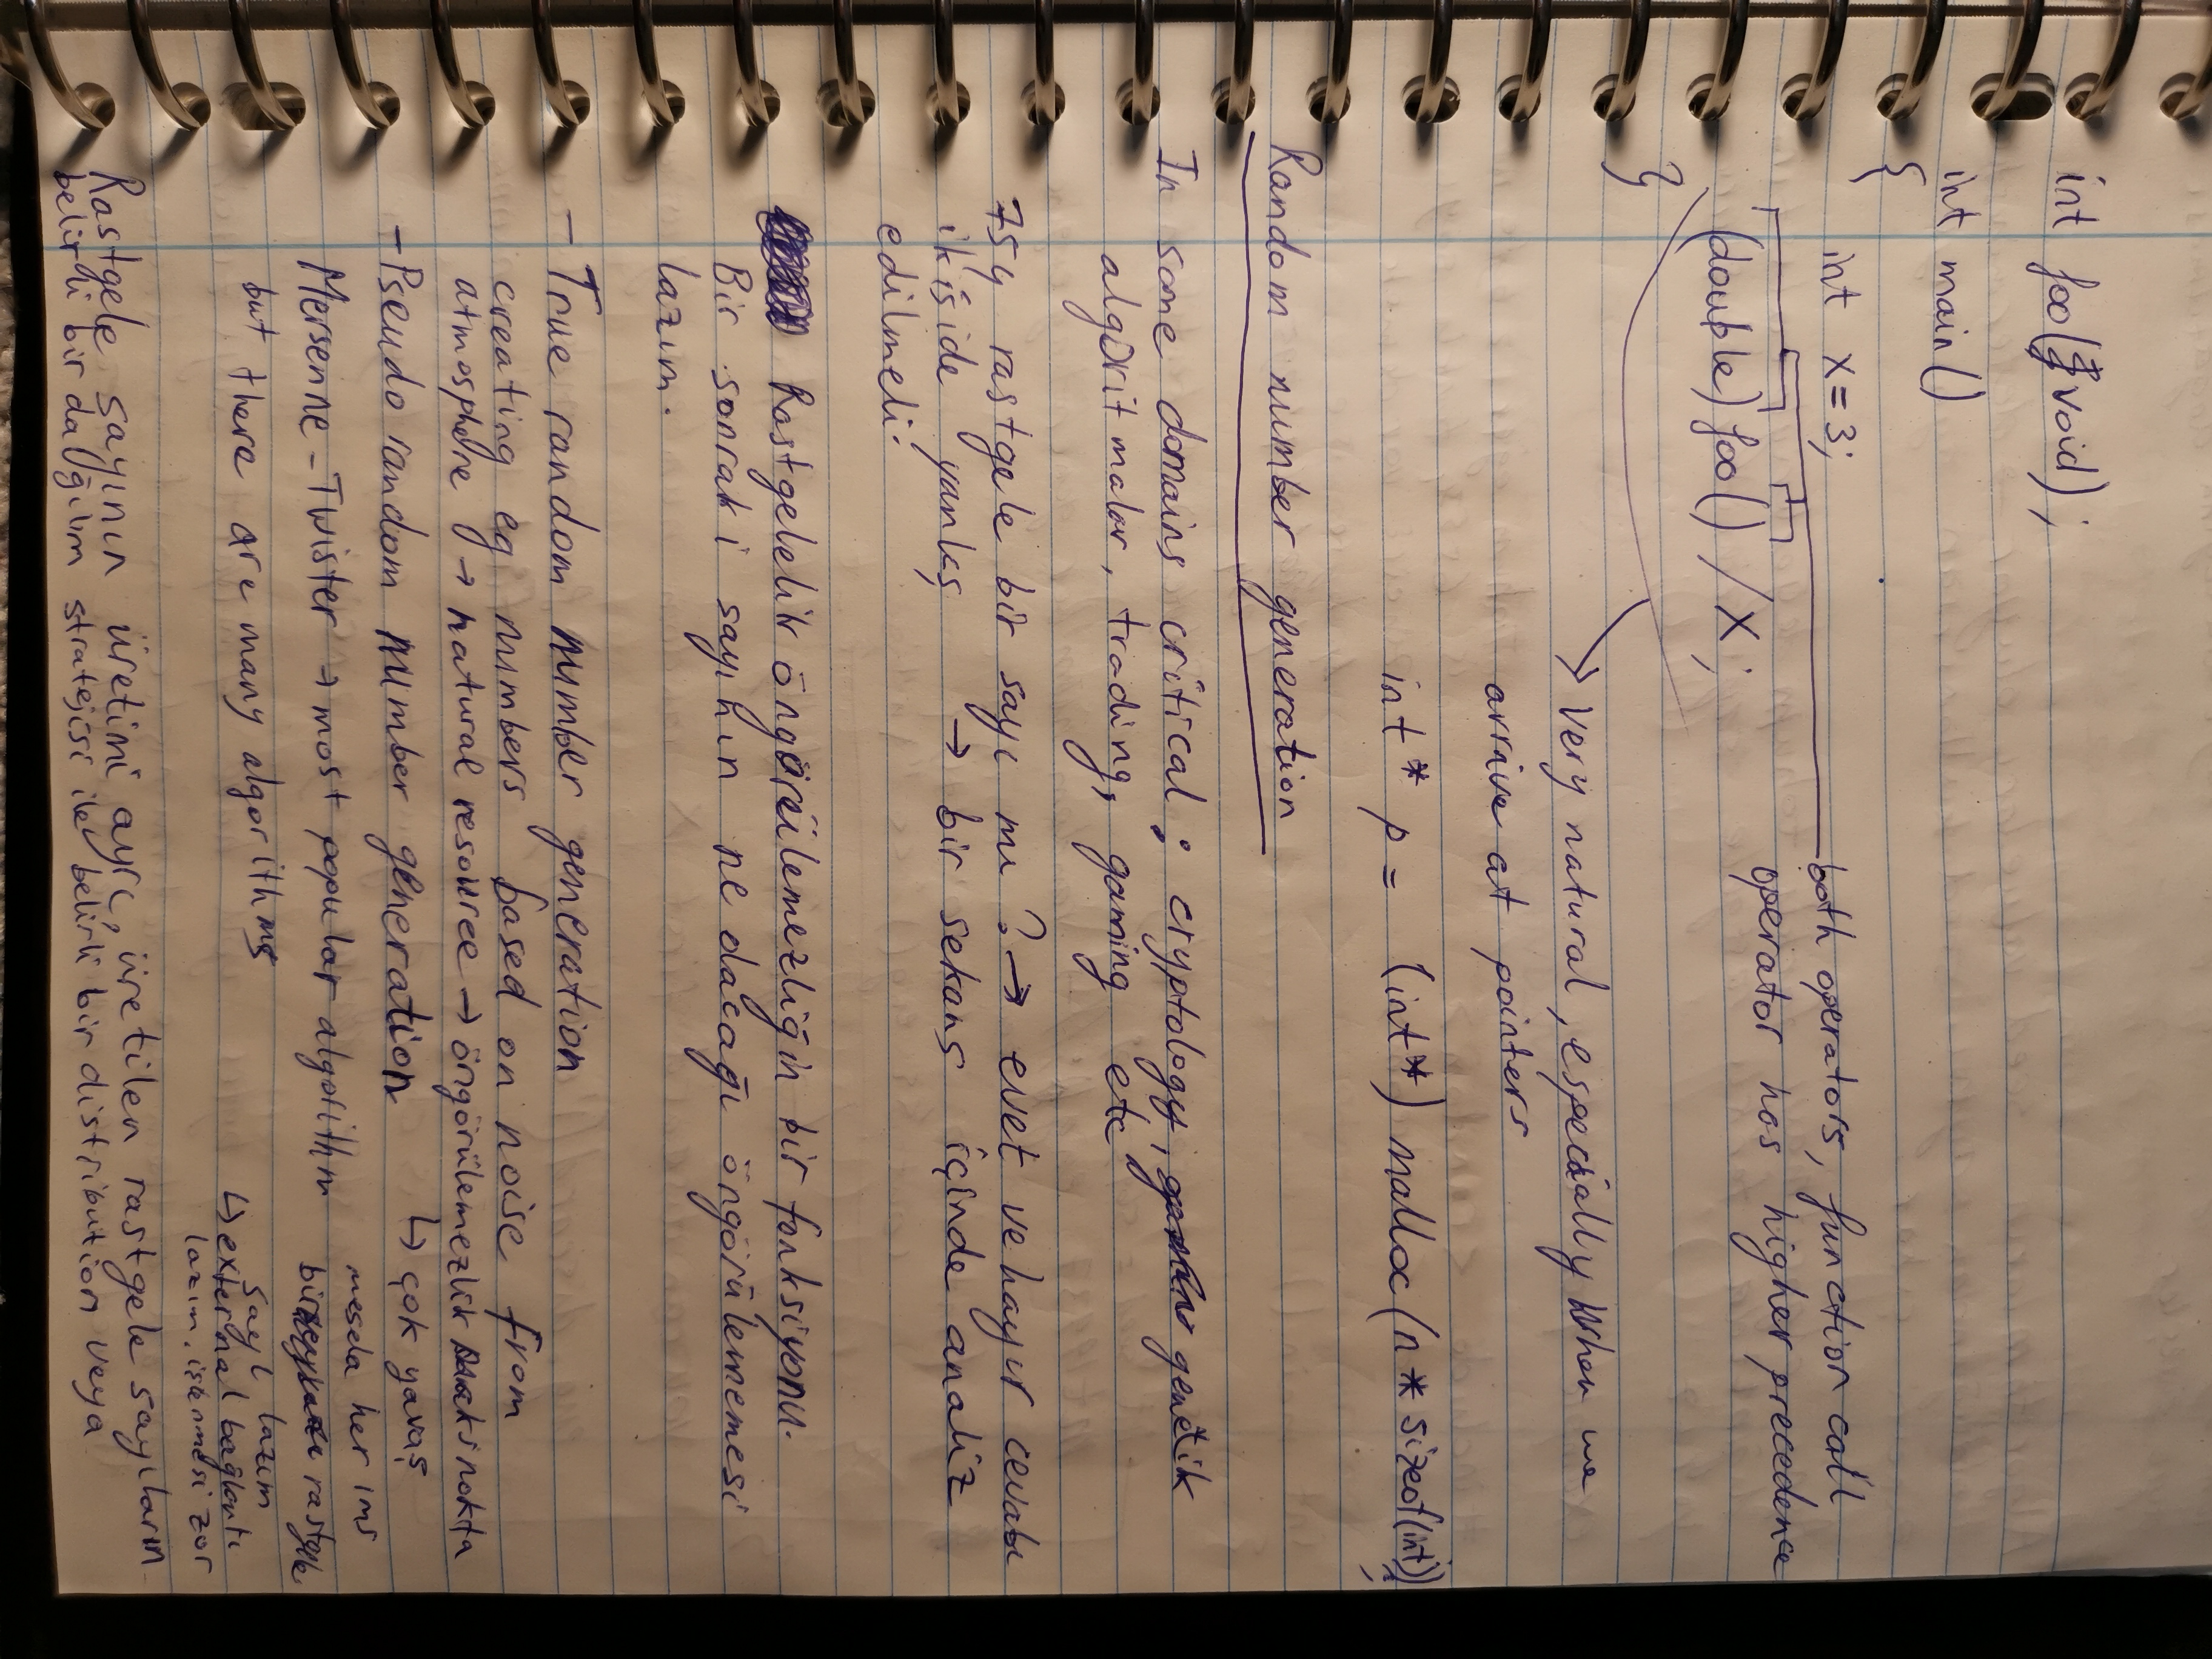 int foo(void);
int main()
{
int x=3;
both operators, function call
operator has higher precedence
(double) foo() / x;
}
very natural, especially when we
arrive at pointers
int* p = (int*) malloc(n * sizeof(int));
Random number generation
In some domains critical: cryptology, genetik
algoritmalar, trading, gaming etc
754 rastgele bir sayı mı? → evet ve hayır cevabı
ikiside yanlış → bir sekans içinde analiz
edilmeli.
Rastgelelik öngörülemezliğin bir fonksiyonu.
Bir sonraki sayının ne olacağı öngörülememesi
lazım.
- True random number generation
creating eg numbers based on noise from
atmosphere → natural resource → öngörülemezlik nokta
↳ çok yavaş
mesela her 1ms
bir rastgele
sayı lazım
↳ external bağlantı
lazım, işlenmesi zor
- Pseudo random number generation
Mersenne-Twister → most popular algorithm
but there are many algorithms
Rastgele sayının üretimi ayrı, üretilen rastgele sayıların
belirli bir dağılım stratejisi ile belirli bir distribution veya